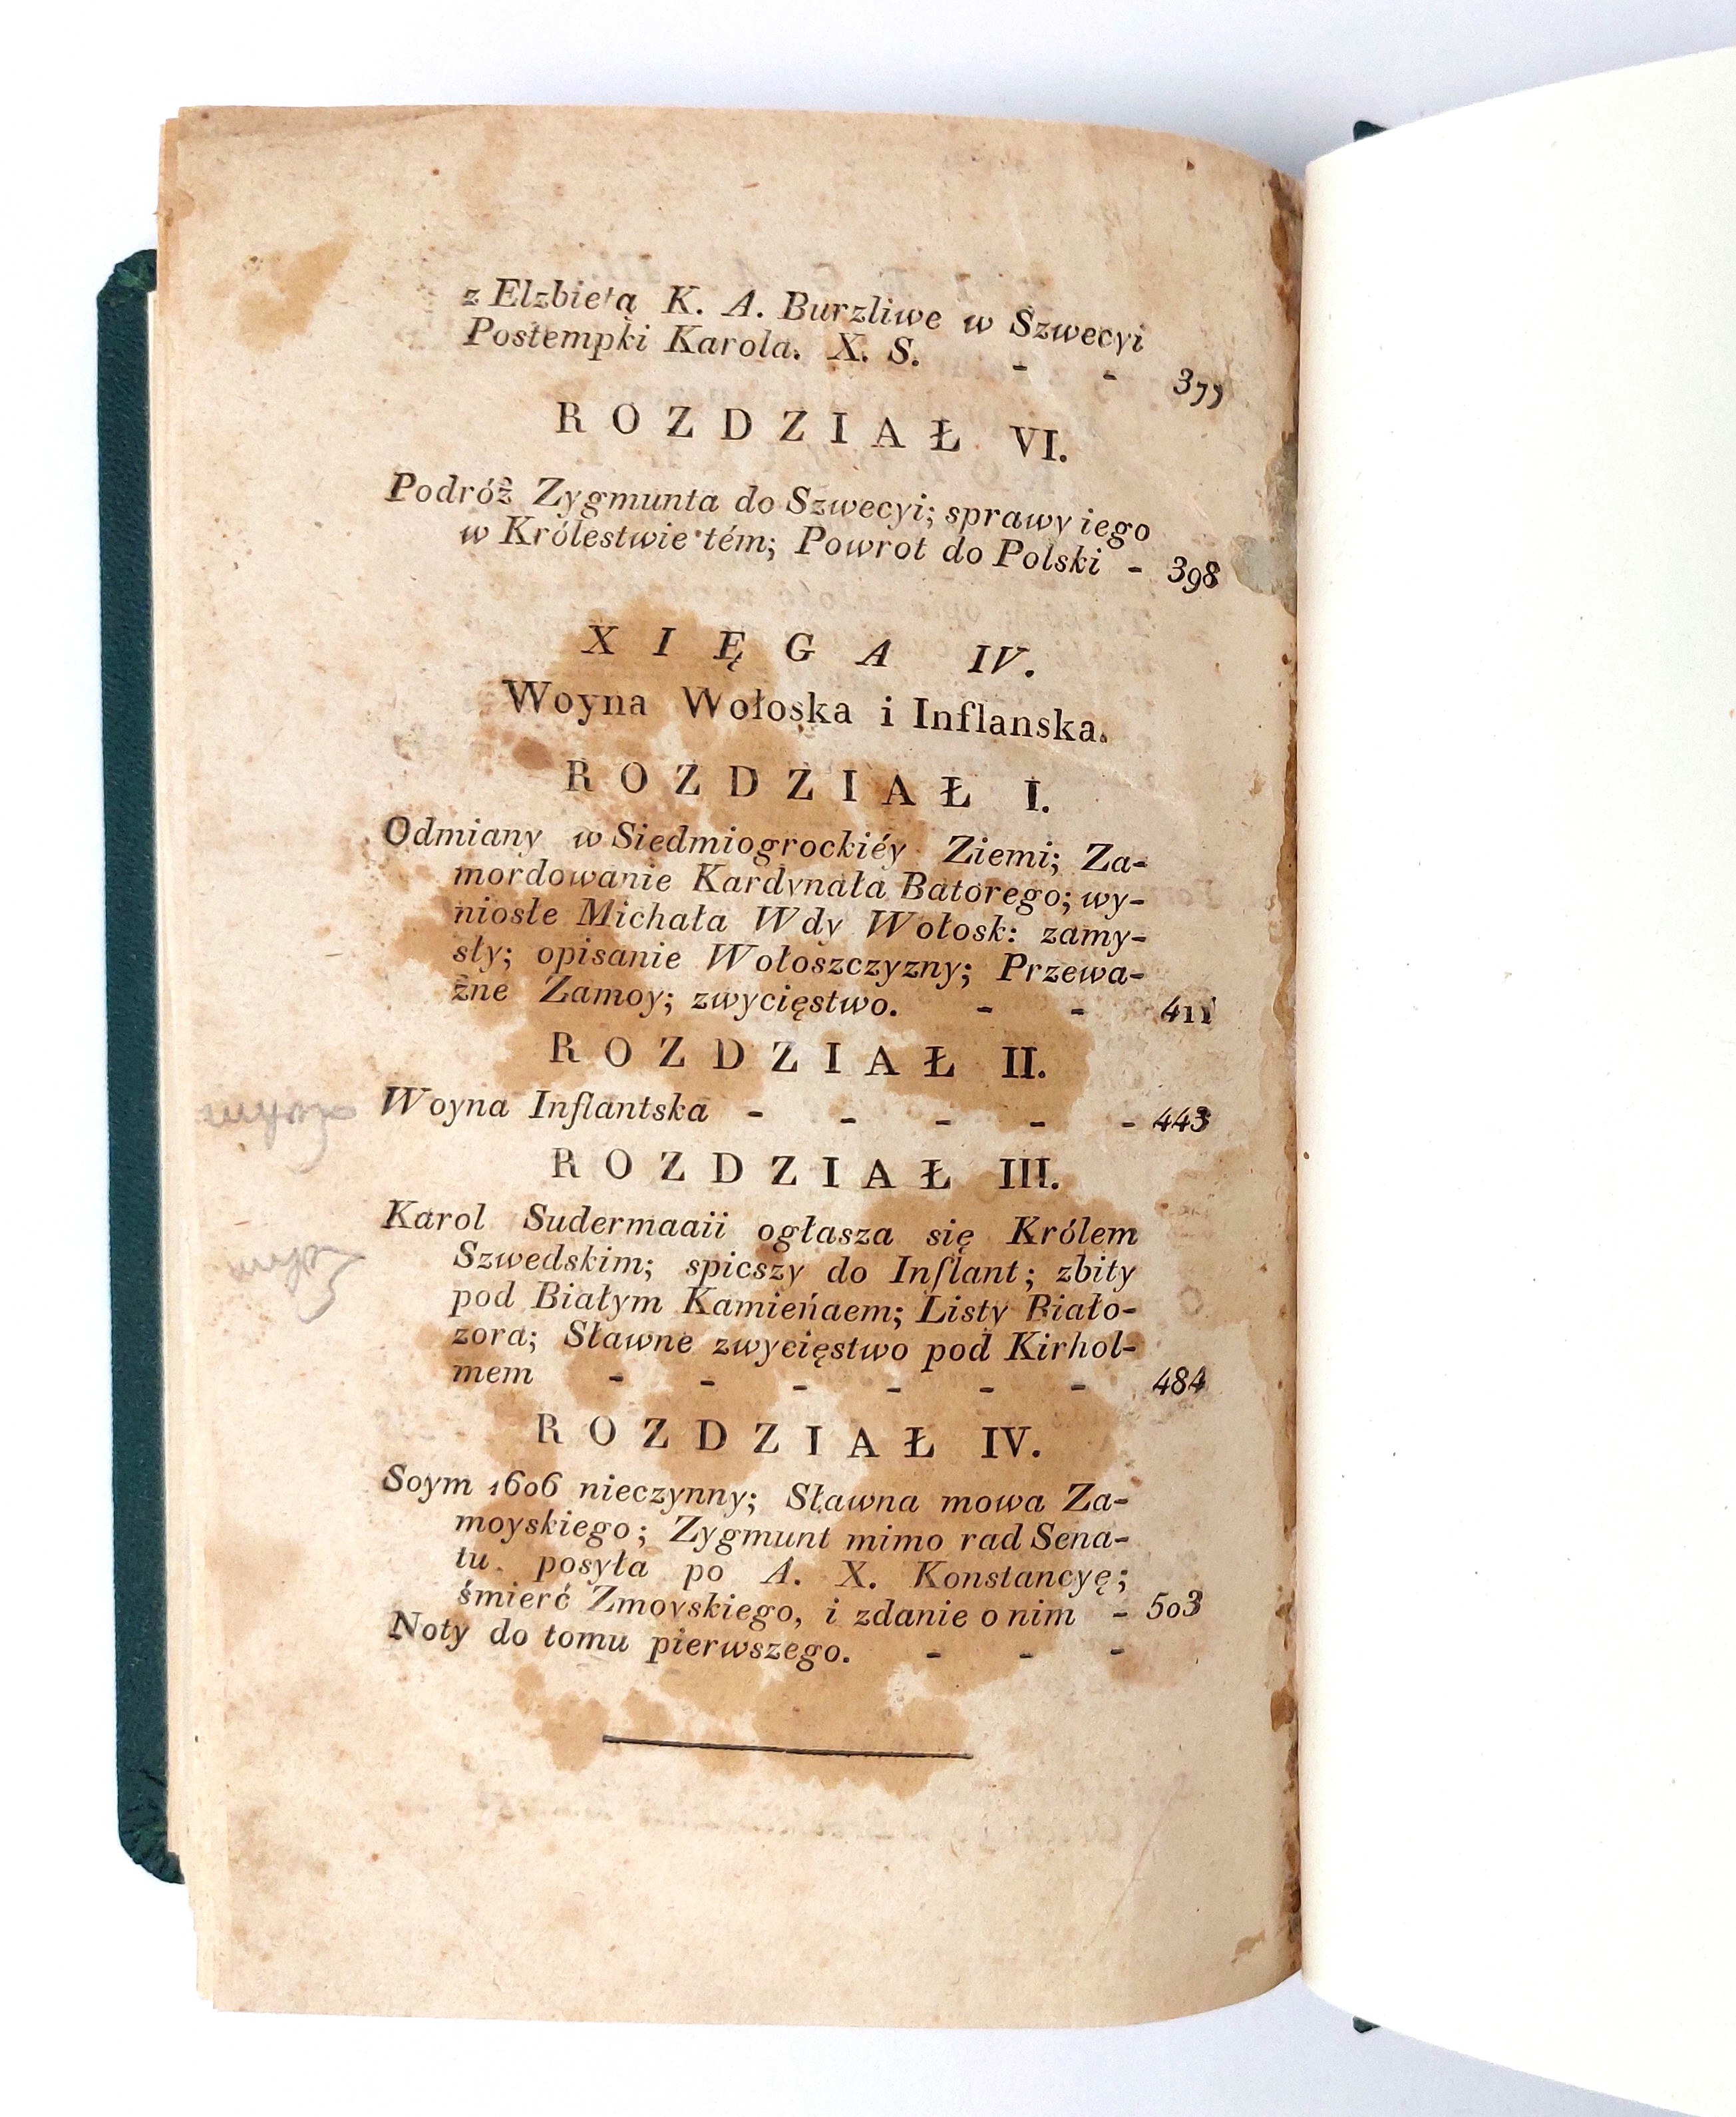 z Elzbietą K. A. Burzliwe w Szwecyi
Postempki Karola. X. S. - - 377
ROZDZIAŁ VI.
Podróż Zygmunta do Szwecyi; sprawy iego
w Królestwie tém; Powrot do Polski - 398
XIĘGA IV.
Woyna Wołoska i Inflanska.
ROZDZIAŁ I.
Odmiany w Siedmiogrockiéy Ziemi; Za-
mordowanie Kardynała Batorego; wy-
niosłe Michała Wdy Wołosk: zamy-
sły; opisanie Wołoszczyzny; Przewa-
żne Zamoy; zwycięstwo. - - 411
ROZDZIAŁ II.
Woyna Inflantska - - - - - 443
ROZDZIAŁ III.
Karol Sudermaaii ogłasza się Królem
Szwedskim; spicszy do Inflant; zbity
pod Białym Kamieńaem; Listy Biało-
zora; Sławne zwycięstwo pod Kirhol-
mem - - - - - - 484
ROZDZIAŁ IV.
Soym 1606 nieczynny; Sławna mowa Za-
moyskiego; Zygmunt mimo rad Sena-
tu posyła po A. X. Konstancyę;
śmierć Zmoyskiego, i zdanie o nim - 503
Noty do tomu pierwszego. - - -